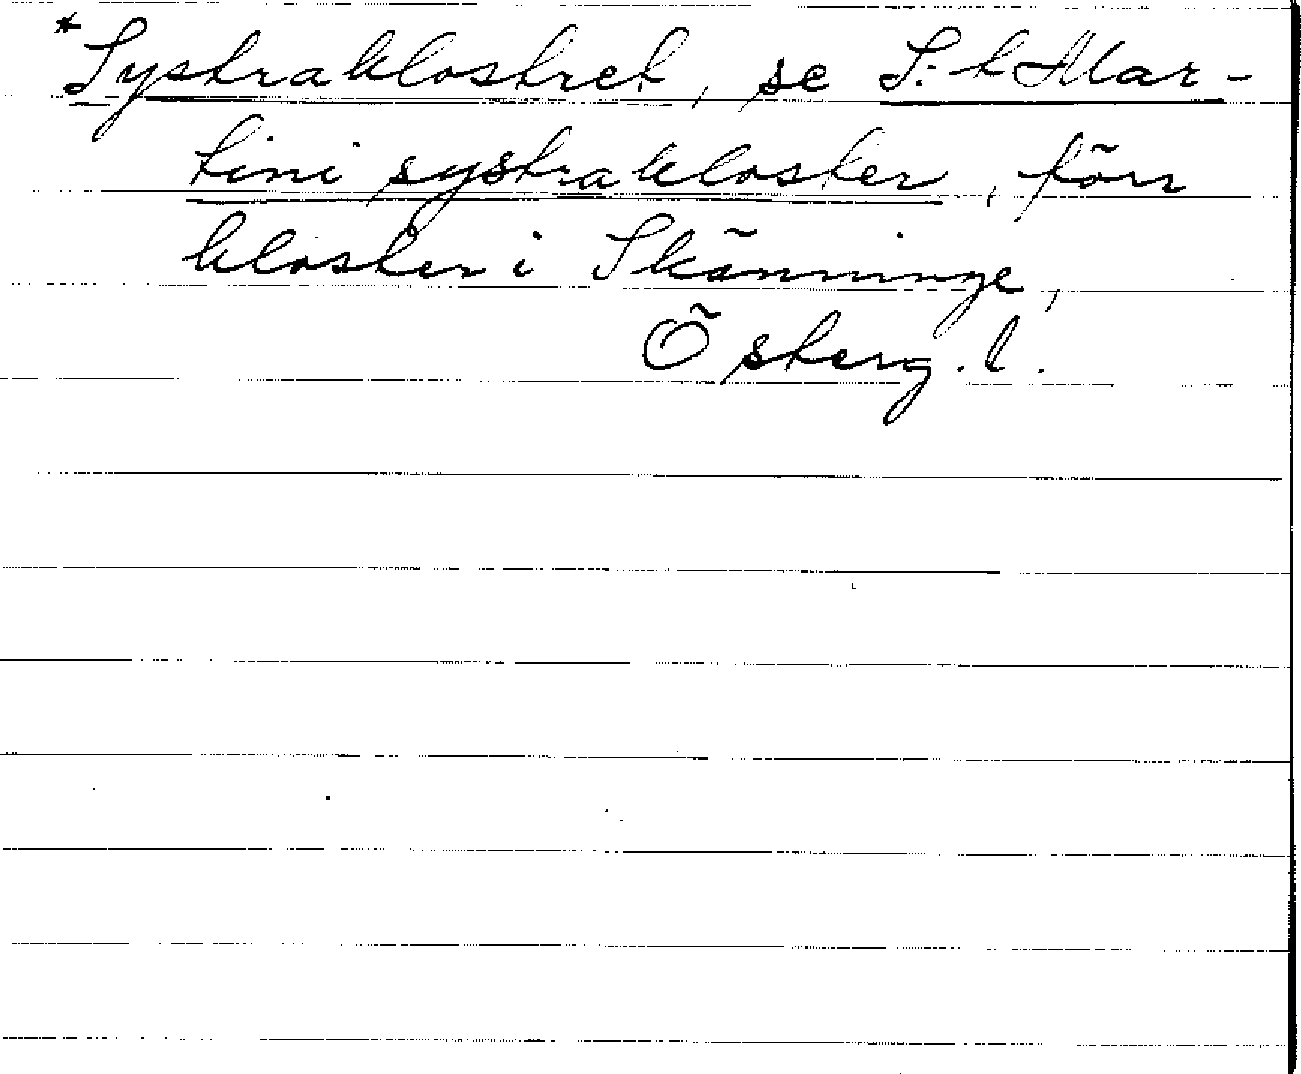 *Systraklostret, se S:t Mar-
tini systrakloster, förr
kloster i Skänninge,
Österg. l.